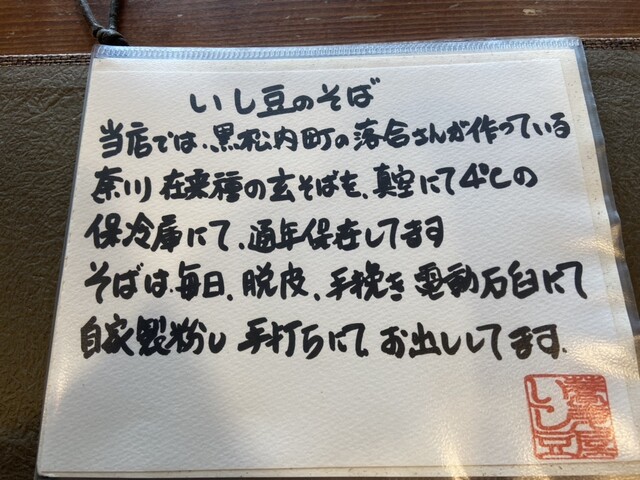 いし豆のそば
当店では、黒松内町の落合さんが作っている
奈川在来種の玄そばを、真空にて4℃の
保冷庫にて、通年保存してます
そばは、毎日、脱皮、手挽き電動石臼にて
自家製粉し手打ちにてお出ししてます.
いし豆